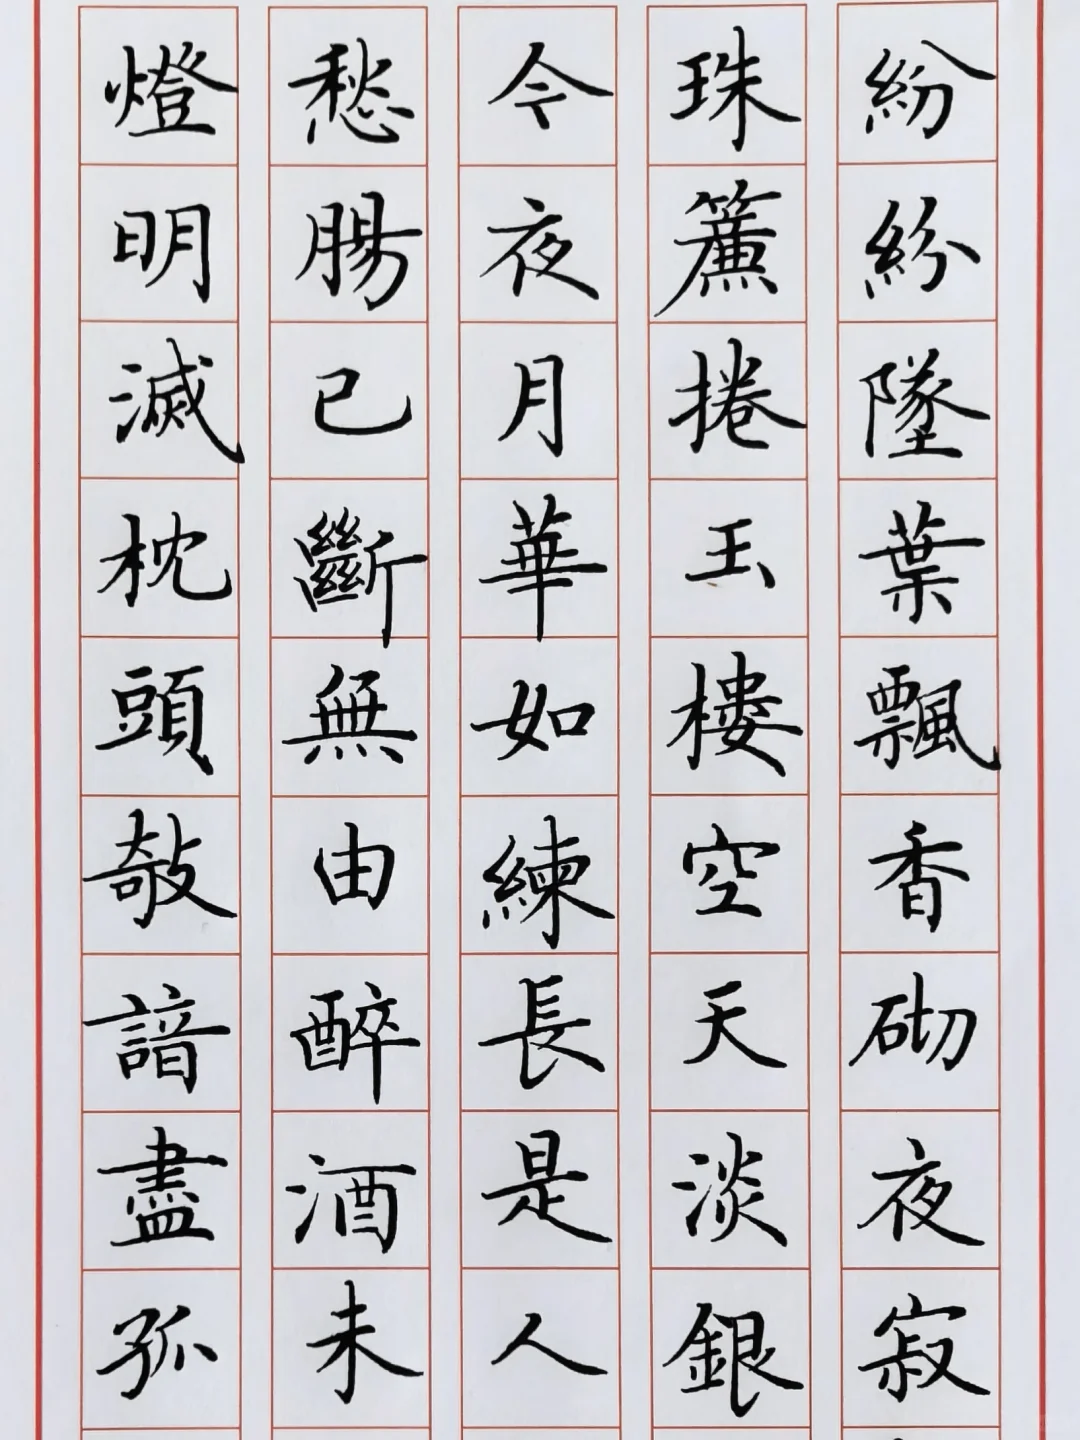 紛紛墜葉飄香砌夜寂
珠簾捲玉樓空天淡銀
今夜月華如練長是人
愁腸已斷無由醉酒未
燈明滅枕頭敧諳盡孤